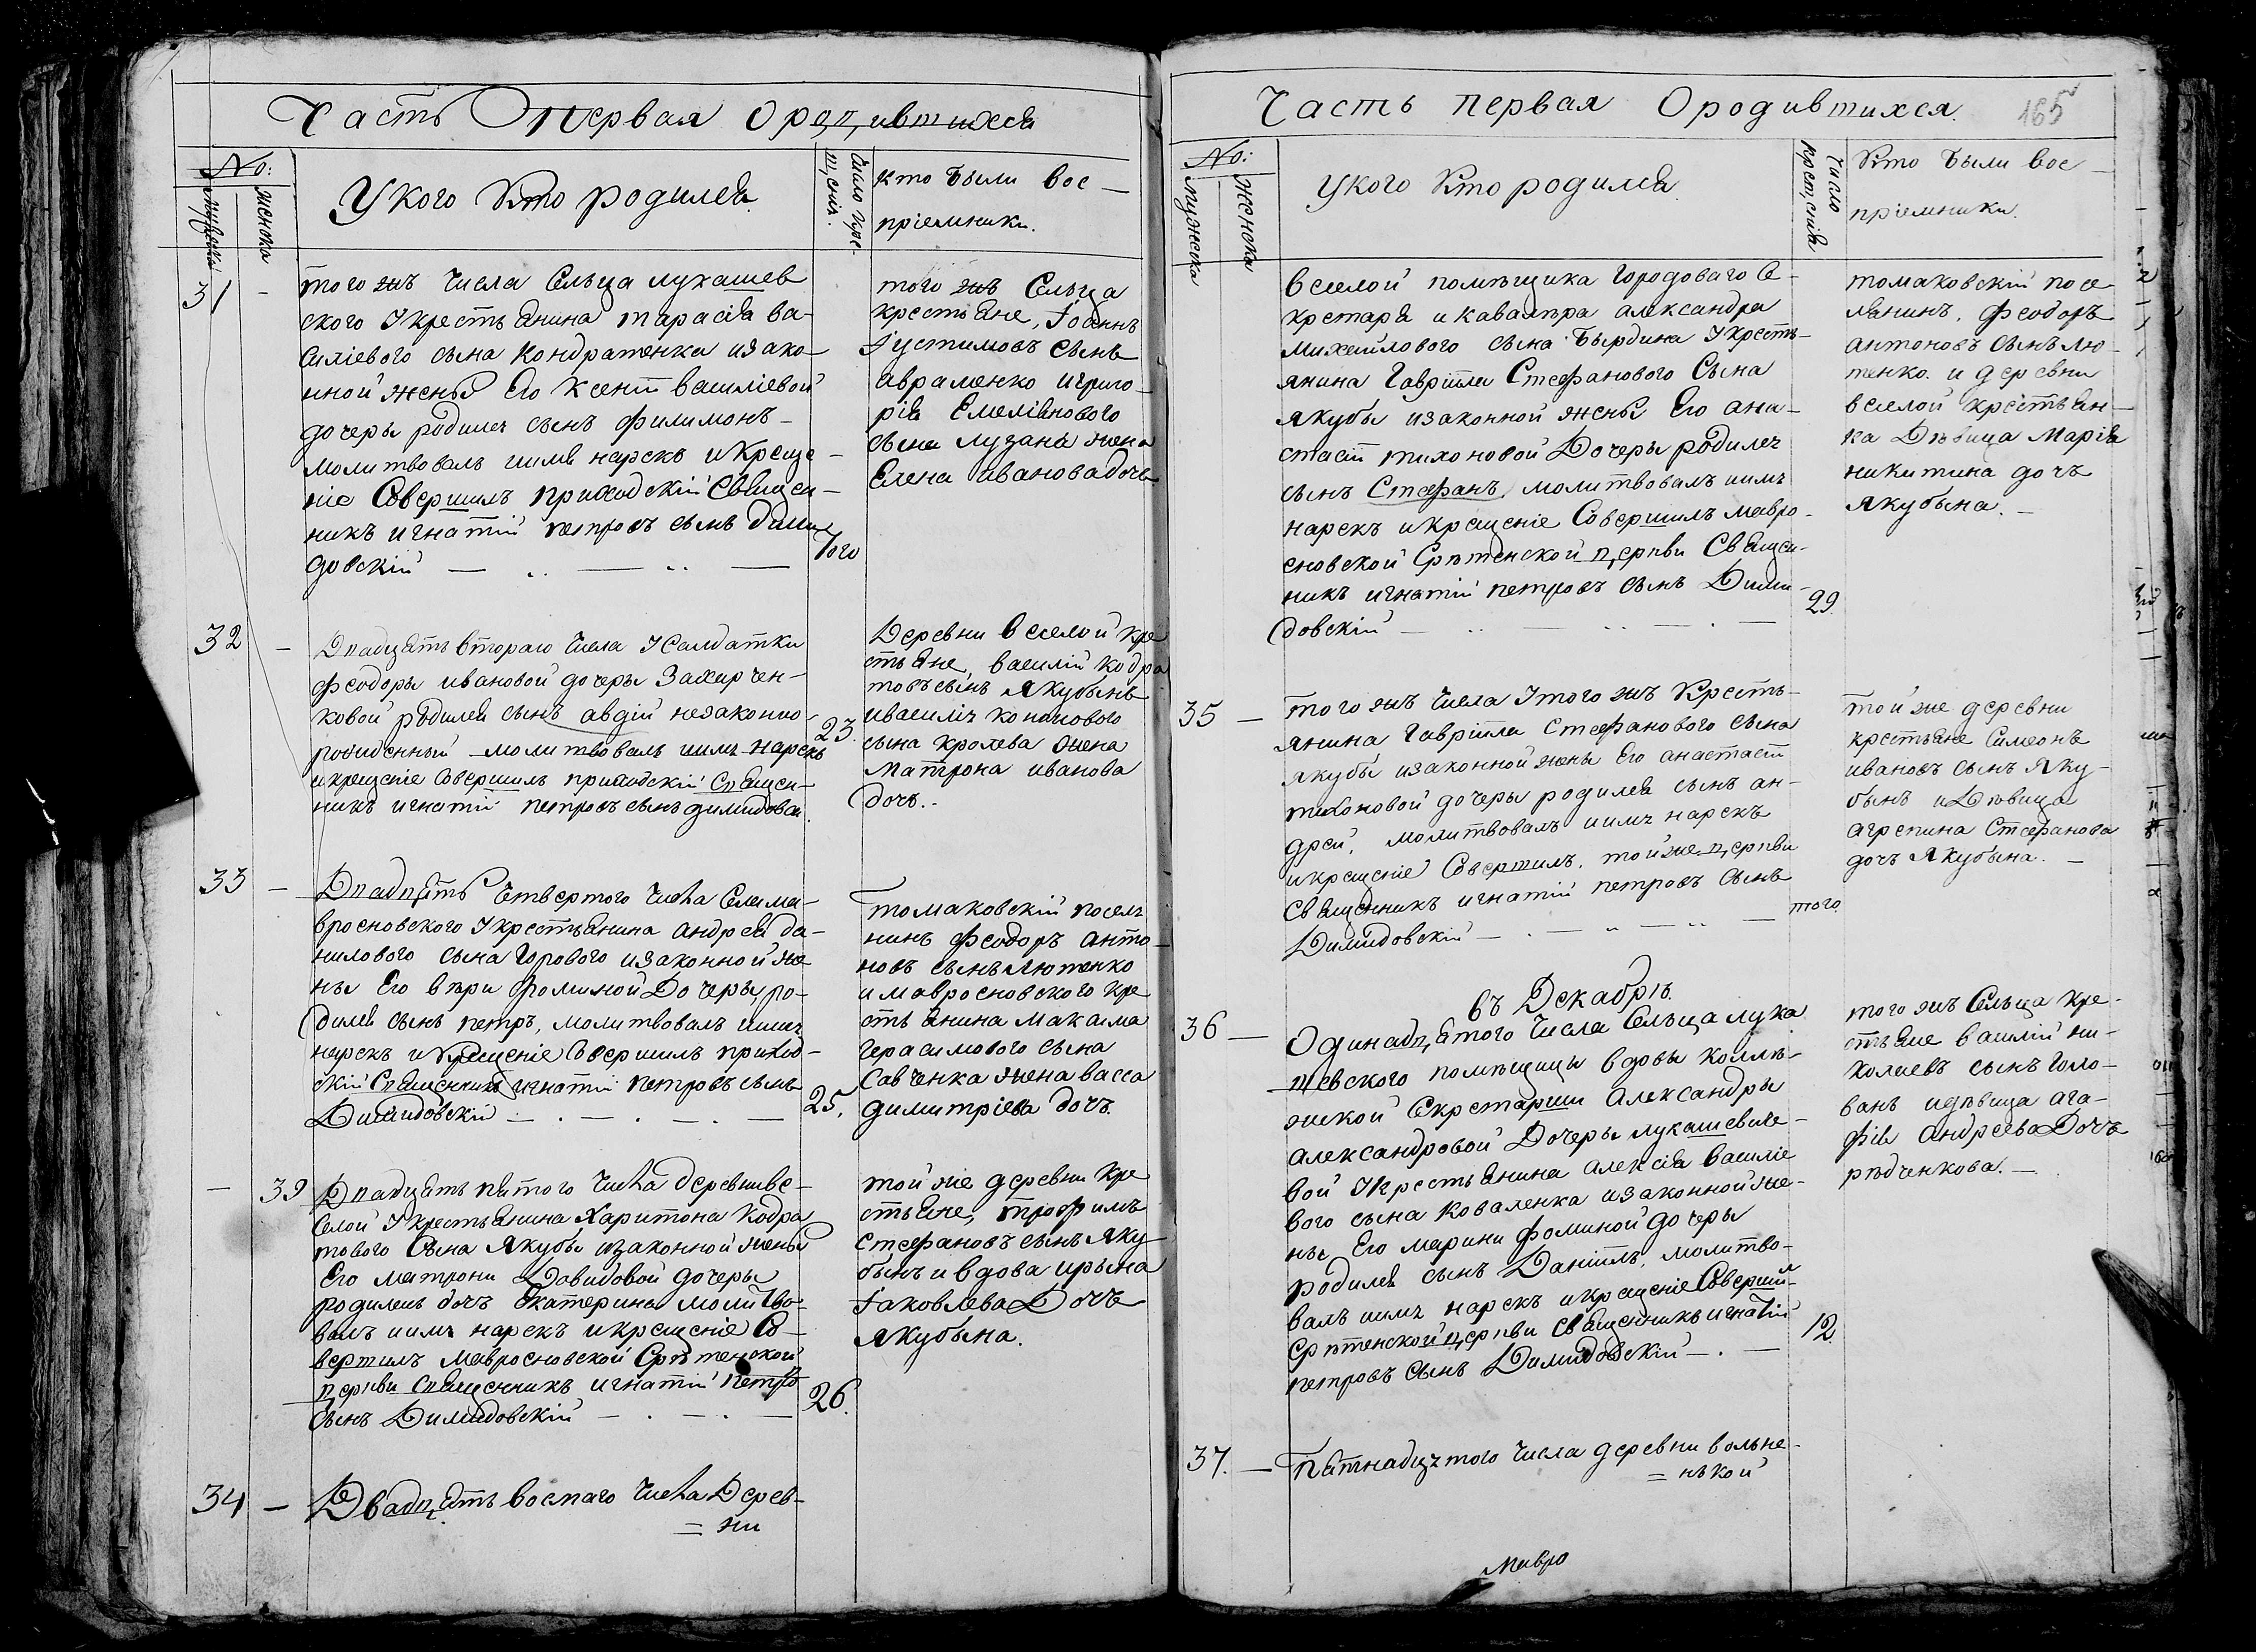 Часть Первая Ородившихся
No:
мужеска
женска
Укого Кто родился
Число кре-
щенія.
кто были вос-
пріемники.
31 -
того жъ Числа Сельца лукашев
ского Укрестьянина тарасія ва-
силіевого сына Кондратенка изако-
нной жены Его Ксеніи василіевой
дочеры родился сынъ филимонъ-
молитвовалъ имя нарекъ и Креще-
ніе Совершилъ приходскій Священ-
никъ игнатій петровъ сынъ дими
довскій
того
того жъ Сельца
крестьяне, Іоаннъ
Іустимовъ сынъ
авраменко игриго-
рія Емеліянового
сына лузана жена
Елена ивановадочь
32 -
Двадцать второго числа Усалдатки
феодоры ивановой дочеры Захарчен-
ковой родился сынъ авдій незаконно-
рожденный молитвовалъ имя нарекъ
икрещеніе совершилъ приходскій Священ-
никъ игнатій петровъ сынъ димидовскі
23.
Деревни веселой кре
стьяне, василій кодра
товъ сынъ Якубынъ
ивасилія кононового
сына кролева жена
Матрона иванова
дочь.
33 -
Двадцать Четвертого Числа Селама-
вросновского Укрестьянина андрея да-
нилового сына Горового изаконной же
ны Его вѣри фоминой Дочеры, ро-
дился сынъ петръ, молитвовалъ имя
нарекъ и Крещеніе Совершилъ приход-
скій Священникъ игнатій петровъ сынъ
Димидовскій
25.
томаковскій поселя
нинъ феодоръ анто-
новъ сынъ лютенко
и мавросновского кре
стьянина максима
герасимового сына
савченка жена васса
димитріева дочь.
- 39
Двадцать пятого Числа деревниве-
селой Укрестьянина Харитона Кодра
тового Сына Якубы изаконной жены
Его матрони Давидовой дочеры
родилась дочь Екатерина молитво-
валъ имя нарекъ икрещеніе Со-
вершилъ мавросновской Срѣтенской
церкви Священникъ игнатій петро
сынъ Димидовскій
26.
той же деревни кре
стьяне, трофимъ
стефановъ сынъ Яку
бынъ и вдова ирына
Іаковлева Дочь
Якубына.
34 -
Двадцать восмаго Числа Дерев-
= ни
Часть первая Ородившихся.
165
No:
мужеска
женска
Укого Кто родился
Число
крещенія
Кто были вос-
пріемники.
веселой помѣщика Городоваго Се-
кретаря и кавалѣра александра
Михайлового сына Бырдина Укресть-
янина Гавріила Стефанового Сына
якубы изаконной жены Его ана-
стасіи тихоновой Дочеры родился
сынъ Стефанъ, молитвовалъ имя
нарекъ икрещеніе Совершилъ мавро-
сновской Срѣтенской церкви Священ-
никъ игнатій петровъ сынъ Дими-
довскій
29.
томаковскій посе-
лянинъ, феодоръ
антоновъ сынъ лю-
тенко. и деревни
веселой крестьян-
ка Дѣвица Марія
никитина дочь
Якубына.
35 -
того жъ Числа Утого жъ Кресть-
янина Гавріила Стефанового сына
якубы изаконной жены Его анастасіи
тихоновой дочеры родился сынъ ан-
дрей, молитвовалъ имя нарекъ
икрещеніе Совершилъ. той же церкви
Священникъ игнатій петровъ сынъ
Димидовскій
того.
той же деревни
крестьяне Симеонъ
ивановъ сынъ Яку-
бынъ иДѣвица
агрепина Стефанова
дочь Якубына.
въ Декабрѣ.
36 -
Одинадцатого Числа Сельца лука
шевского помѣщицы вдовы коллѣ-
жской Секретарши Александры
александровой Дочеры лукашевиче-
вой Укрестьянина алексія василіе
вого сына коваленка изаконной же-
ны Его марини фоминой дочеры
родился сынъ Даніилъ, молитво-
валъ имя нарекъ икрещеніе Соверши-
Срѣтенской церкви священникъ игнатій
петровъ сынъ Димидовскій
12
того жъ Сельца кре-
стьяне василій ни-
колаевъ сынъ голо-
ванъ идѣвица ага-
фія андреева Дочь
рѣдченкова.
37. -
Пятнадцятого Числа деревни вольне-
= нькой
Мавро